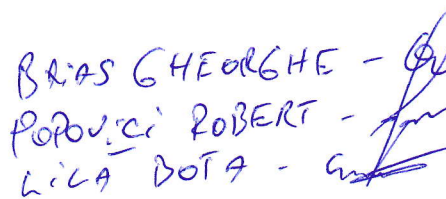 BRIAS GHEORGHE -
POPOVICI ROBERT -
LICA BOTA -